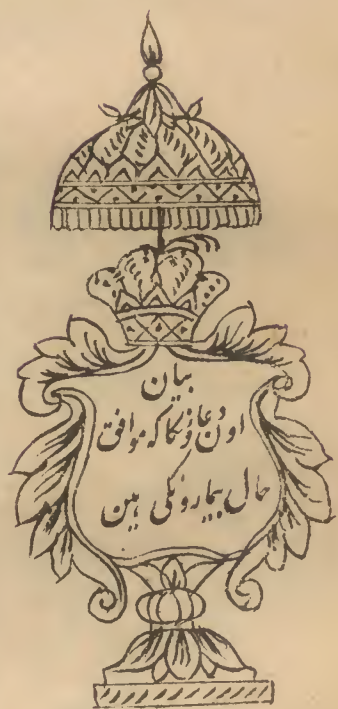 بیان
اون دعاؤنکا که موافق
حال بیمارونکی ہین